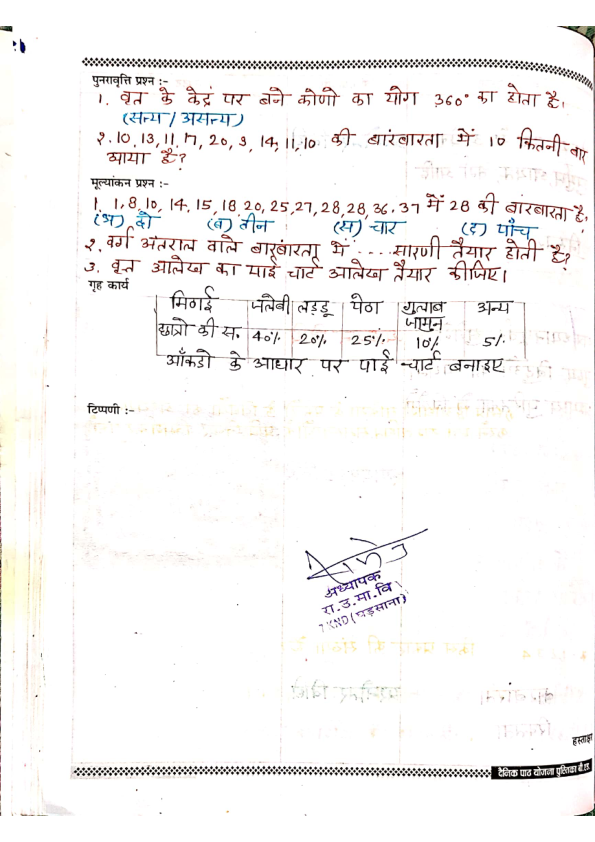 पुनरावृत्ति प्रश्न :-
1. वृत के केद्रं पर बने कोणो का योग 360° का होता है।
(सत्य / असत्य)
2. 10, 13, 11, 17, 20, 9, 14, 11, 10 की बारंबारता में 10 कितनी बार
आया है?
मूल्यांकन प्रश्न :-
1. 1, 8, 10, 14, 15, 18 20, 25, 27, 28, 28, 36, 37 में 28 की बारंबारता है,
(अ) दो (ब) तीन (स) चार (द) पाँच
2. वर्ग अंतराल वाले बारंबारता में .... सारणी तैयार होती है?
3. वृत्त आलेख का पाई चार्ट आलेख तैयार कीजिए।
गृह कार्य
मिठाई जलेबी लड्डू पेठा गुलाब जामुन अन्य
छात्रो की स. 40% 20% 25% 10% 5%
आँकडो के आधार पर पाई चार्ट बनाइए
टिप्पणी :-
अध्यापक
रा.उ.मा.वि
7 KND (घड़साना)
हस्ताक्षर
दैनिक पाठ योजना पुस्तिका बी.एड.